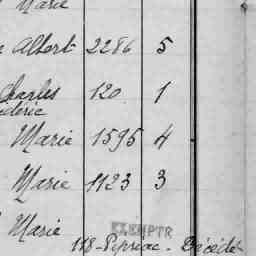 Marie
Albert 2286 5
Charles 120. 1
déric
Marie 1595 4
Marie 1123 3
Marie
118 - - Décédé